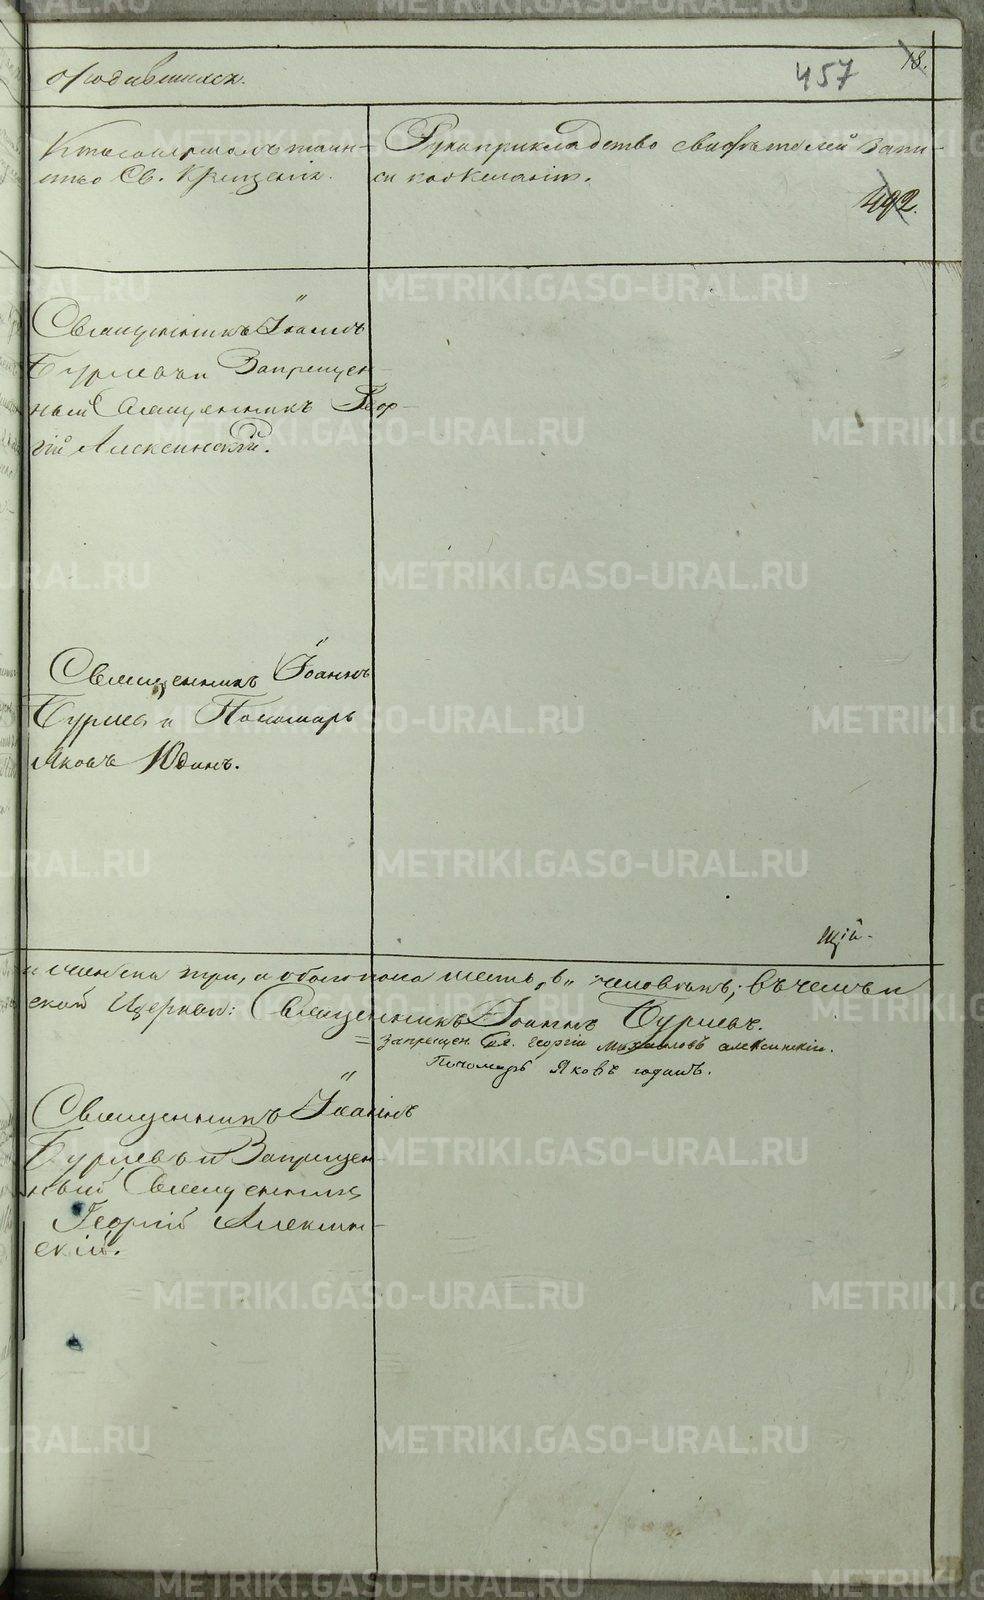 о родившихся.
457
18.
Кто совершалъ таин-
ство Св. Крещенія.
Рукоприкладство свидѣтелей запи-
си по желанію.
492.
Священникъ Іоаннъ
Бурлевъ и Запрещен-
ный Священникъ Геор-
гій Алексинскій.
Священникъ Іоаннъ
Бурлевъ и Пономарь
Яковъ Юдинъ.
щій-
три, а обоего пола шесть „6„ человѣкъ; въ чемъ и
ской Церкви: Священникъ Іоаннъ Бурлевъ.
запрещен. Св. Георгій Михаиловъ Алексинскій.
Пономарь Яковъ Юдинъ.
Священникъ Іоаннъ
Бурлевъ и Запрещен-
ный Священникъ
Георгій Алексин-
скій.
METRIKI.GASO-URAL.RU